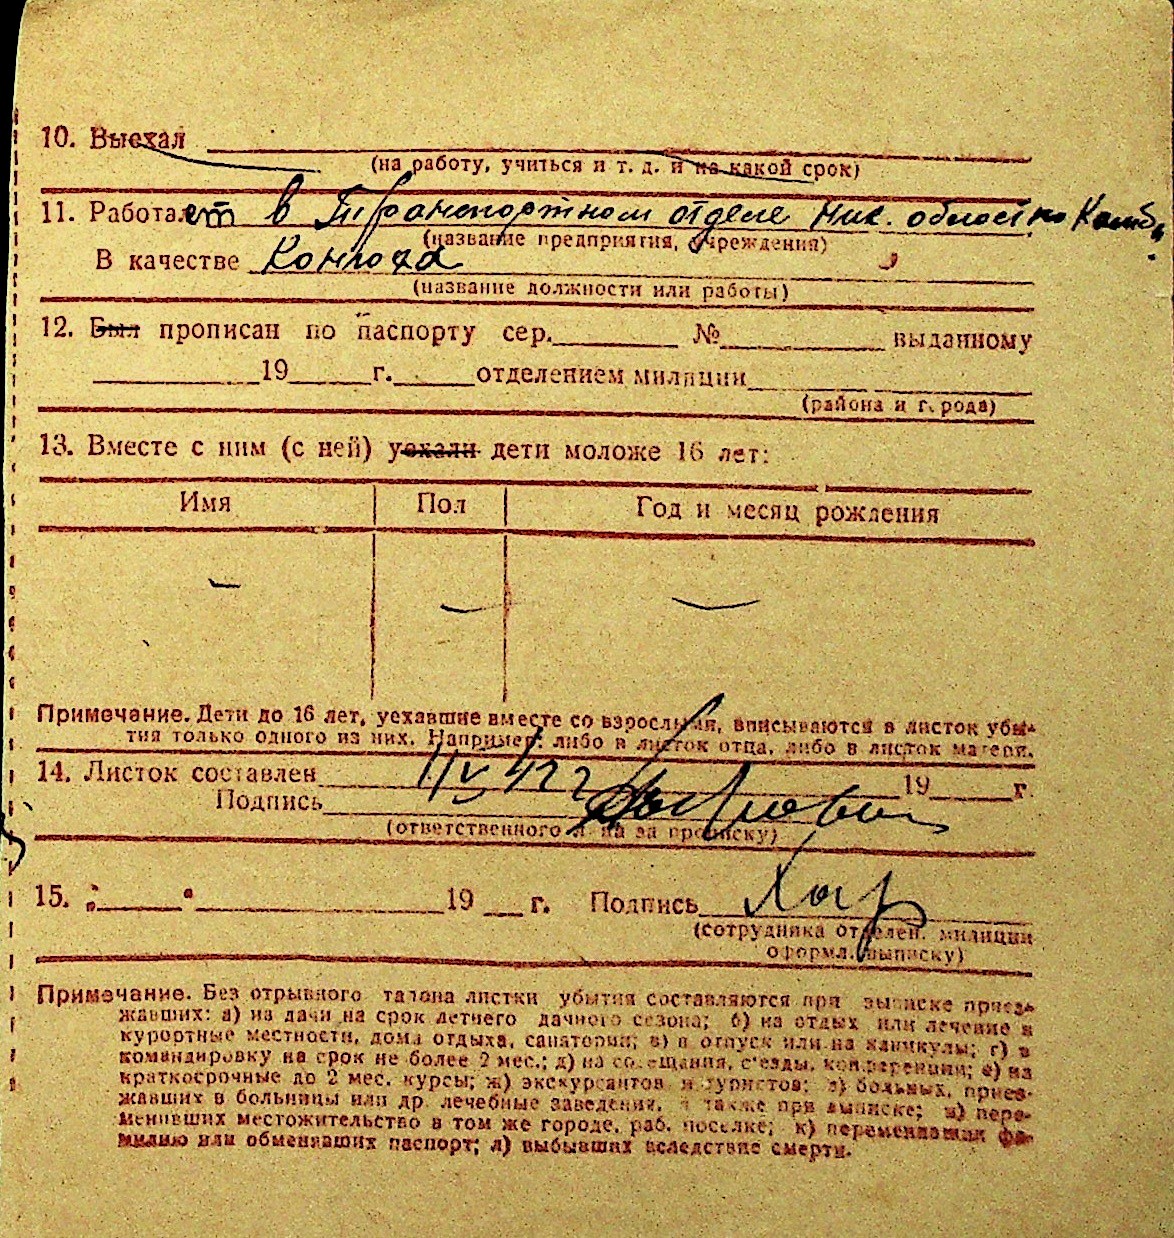 10. Выехал
(на работу, учиться и т. д. и на какой срок)
11. Работает в Транспортном отделе Ник. област
(название предприятия, учреждения)
В качестве Конюха
(название должности или работы)
12. Был прописан по паспорту сер. № выданному
19 г. отделением милиции
(района и города)
13. Вместе с ним (с ней) уехали дети моложе 16 лет:
Имя Пол Год и месяц рождения
Примечание. Дети до 16 лет, уехавшие вместе со взрослыми, вписываются в листок убы-
тия только одного из них. Например: либо в листок отца, либо в листок матери.
14. Листок составлен 19 г.
Подпись
(ответственного л на за прописку)
15. " " 19 г. Подпись Хар
(сотрудника отделен. милиции
оформл. выписку)
Примечание. Без отрывного талона листки убытия составляются при выписке приез-
жавших: а) из дачи на срок летнего дачного сезона; б) на отдых или лечение в
курортные местности, дома отдыха, санатории; в) в отпуск или на каникулы; г) в
командировку на срок не более 2 мес.; д) на совещания, с'езды, конференции; е) на
краткосрочные до 2 мес. курсы; ж) экскурсантов и туристов; з) больных, приез-
жавших в больницы или др. лечебные заведения, а также при выписке; и) пере-
менивших местожительство в том же городе, раб. поселке; к) переменивших фа-
милию или обменявших паспорт; л) выбывших вследствие смерти.